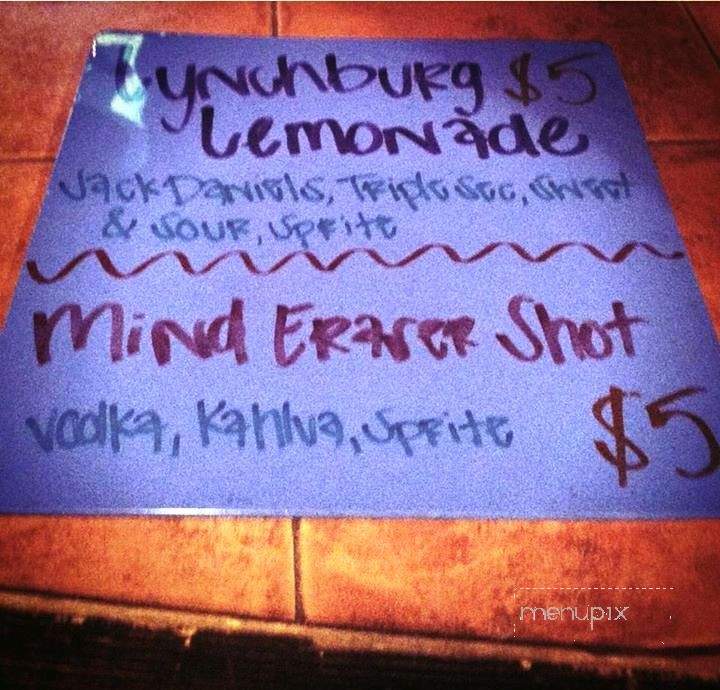 Lynchburg $5
Lemonade
Jack Daniels, Triple Sec, Sweet
& Sour, Sprite
Mind Eraser Shot
Vodka, Kahlua, Sprite $5
menupix